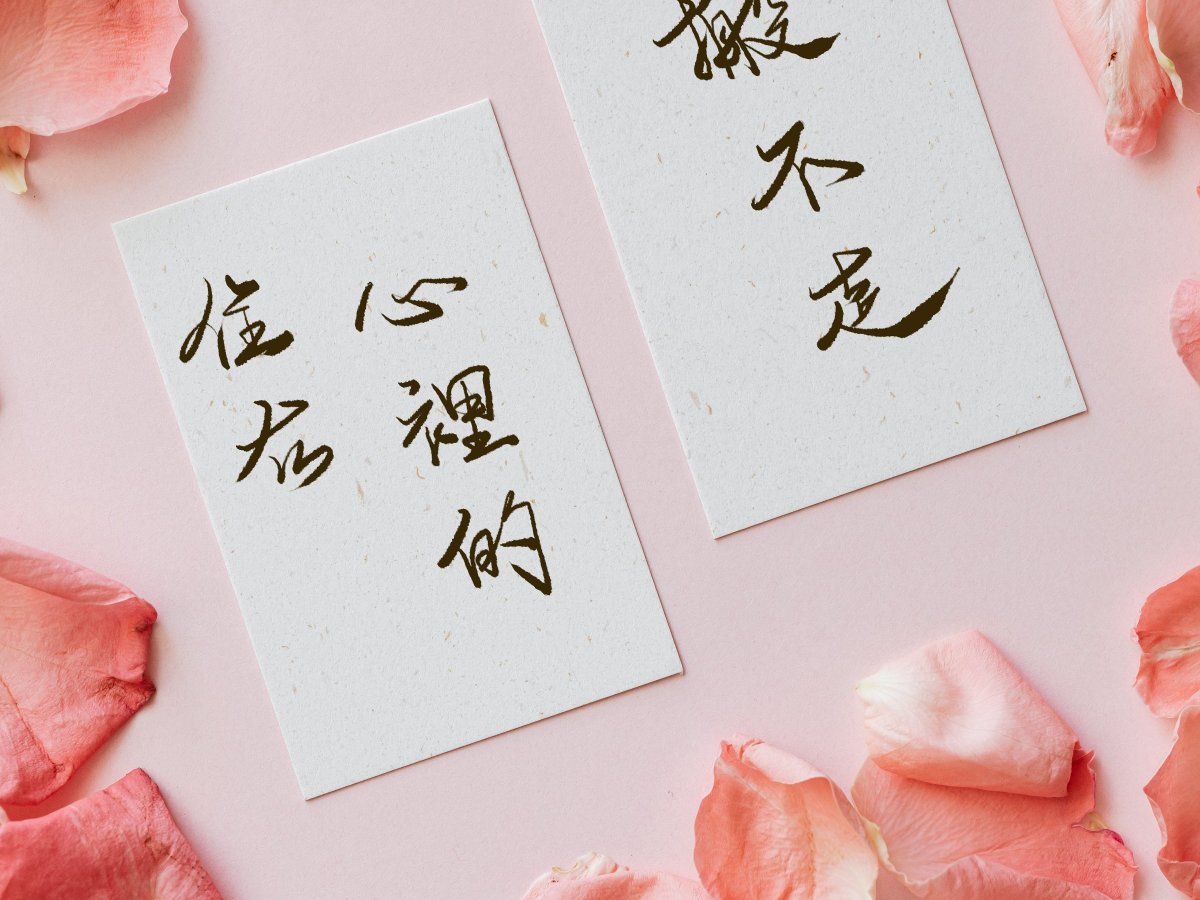 住在
心裡的
搬不走